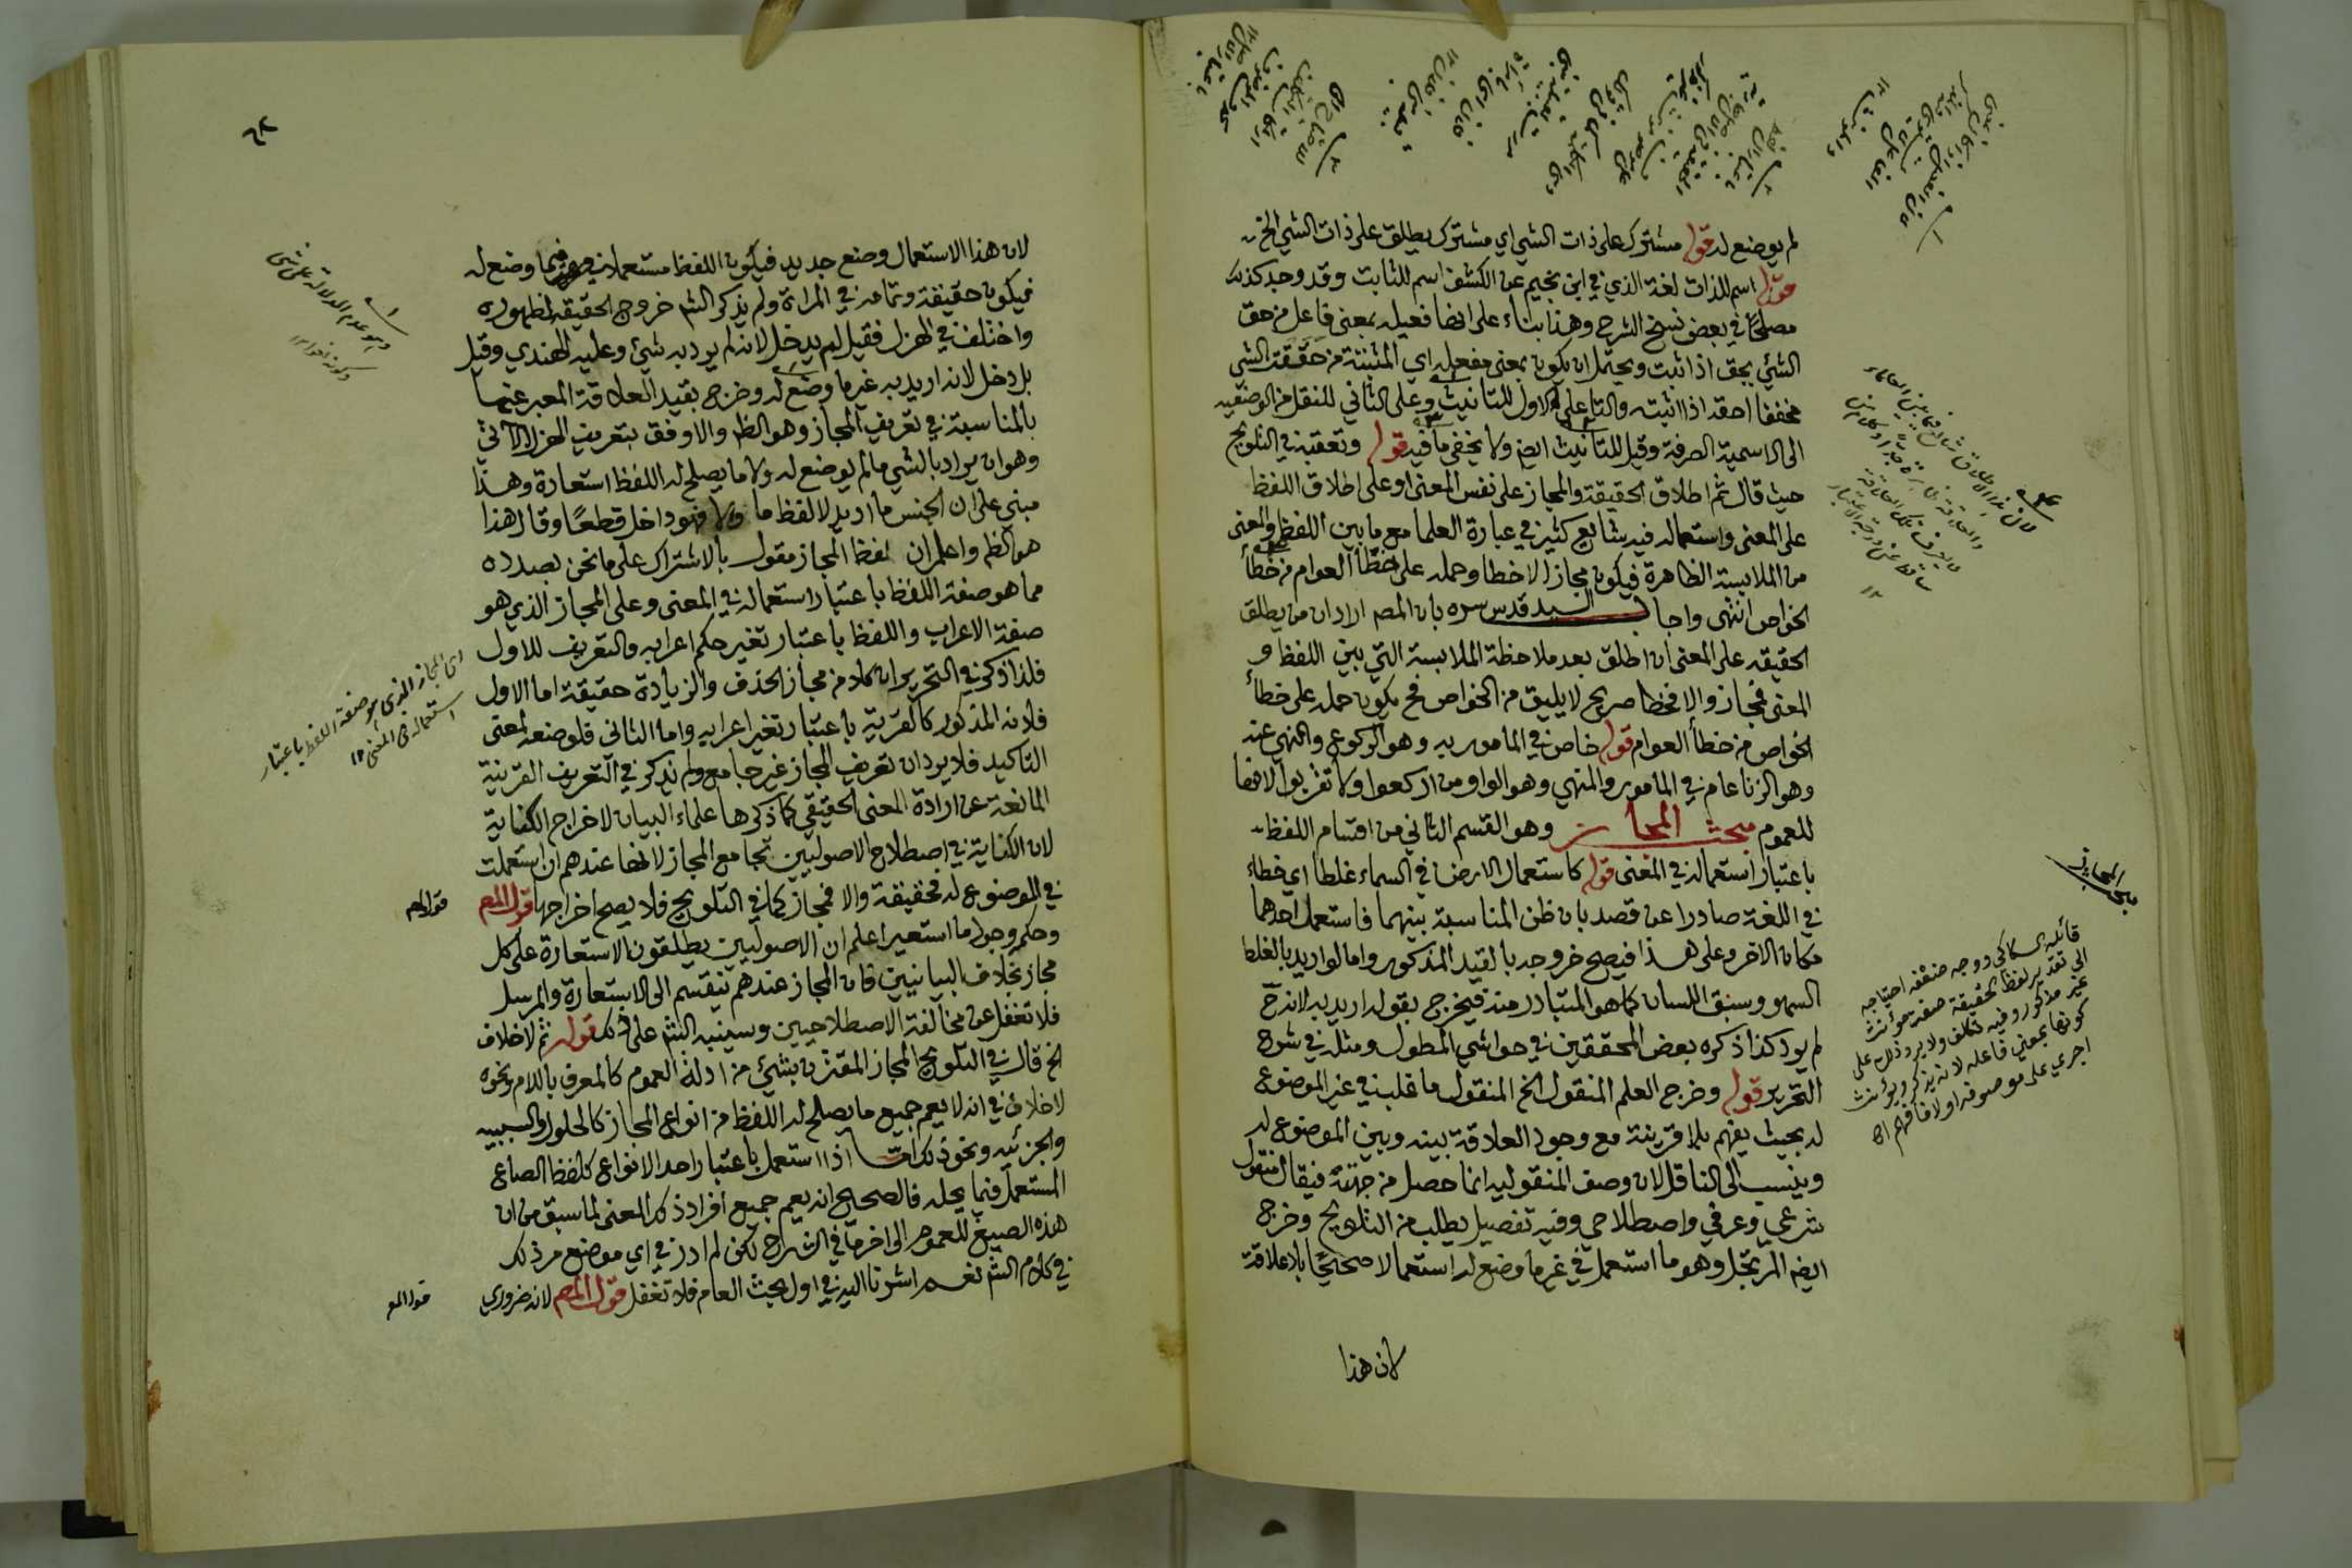 لم يوضع له قوله مشترك على ذات الشي اي مشترك يطلق على ذات الشي الخ
قوله اسم للذات لغة الذي في ابن نجيم عن الكشف اسم للثابت وقد وجد كذلك
مصلحًا في بعض نسخ الشرح وهذا بناء على انها فعيل بمعنى فاعل من حق
الشئ يحق اذا ثبت ويحتمل ان يكون بمعنى مفعول اي المثبتة من حققت الشي
مخففا احقه اذا اثبته والتا على الاول للتانيث وعلى الثاني للنقل من الوصفية
الى الاسمية الصرفة وقيل للتانيث ايض ولا يخفى ما فيه قوله وتعقبه في التلويح
حيث قال ثم اطلاق الحقيقة والمجاز على نفس المعنى او على اطلاق اللفظ
على المعنى واستعماله فيه شايع كثير في عبارة العلما مع ما بين اللفظ والمعنى
من الملابسة الظاهرة فيكون مجازا لا خطا وحمله على خطأ العوام من خطأ
الخواص انتهى واجاب السيد قدس سره بان المص اراد ان من يطلق
الحقيقه على المعنى ان اطلق بعد ملاحظة الملابسة التي بين اللفظ و
المعنى فمجاز والا فخطا صريح لا يليق من الخواص فح يكون حمله على خطأ
الخواص من خطأ العوام قوله خاص في المامور به وهو الركوع والنهي عنه
وهو الزنا عام في المامور والمنهي وهو الواو من اركعوا ولا تقربوا لانها
للعموم مبحث المجاز وهو القسم الثاني من اقسام اللفظ
باعتبار استعماله في المعنى قوله كاستعمال الارض في السماء غلطا اي خطاء
في اللغة صادرا عن قصد بان ظن المناسبة بينهما فاستعمل احدهما
مكان الاخر وعلى هذا فيصح خروجه بالقيد المذكور واما لو اريد بالغلط
السهو وسبق اللسان كما هو المتبادر منه فيخرج بقوله اريد به لانه ح
لم يرد كذا ذكره بعض المحققين في حواشي المطول ومثله في شرح
التحرير قوله وخرج العلم المنقول الخ المنقول ما غلب في غير الموضوع
له بحيث يفهم بلا قرينة مع وجود العلاقة بينه وبين الموضوع له
وينسب الى الناقل لان وصف المنقولية انما حصل من جهته فيقال منقول
شرعي وعرفي واصطلاحي وفيه تفصيل يطلب من التلويح وخرج
ايضا المرتجل وهو ما استعمل في غير ما وضع له استعمالا صحيحًا بلا علاقة
لان هذا
مبحث المجاز
قائله السكاكي ووجه ضعفه احتياجه
الى تقدير لفظ الحقيقة صفة مؤنث
غير مذكور وفيه تكلف ولا يرد ذلك على
كونها بمعنى فاعله لانه يذكر ويؤنث
اجري على موصوفه اولا فافهم اه
٦٢
لان هذا الاستعمال وضع جديد فيكون اللفظ مستعملا فيما وضع له
فيكون حقيقة وتمامه في المراة ولم يذكر الش خروج الحقيقه لظهوره
واختلف في الهزل فقيل لم يدخل لانه لم يرد به شئ وعليه الهندي وقيل
بل دخل لانه اريد به غير ما وضع له وخرج بقيد العلاقة المعبر عنها
بالمناسبة في تعريف المجاز وهو الظ والاوفق بتعريف الهزل الاتي
وهو ان يراد بالشي ما لم يوضع له ولا ما يصلح له اللفظ استعارة وهذا
مبني على ان الجنس ما اريد لا لفظ ما والا فهو داخل قطعًا وقال هذا
هو الظ واعلم ان لفظ المجاز مقول بالاشتراك على ما نحن بصدده
مما هو صفة اللفظ باعتبار استعماله في المعنى وعلى المجاز الذي هو
صفة الاعراب واللفظ باعتبار تغير حكم اعرابه والتعريف للاول
فلذا ذكر في التحرير ان كلا من مجاز الحذف والزيادة حقيقة اما الاول
فلانه المذكور كالقرية باعتبار تغير اعرابه واما الثاني فلوضعه لمعنى
التاكيد فلا يرد ان تعريف المجاز غير جامع ولم يذكر في التعريف القرينة
المانعة عن ارادة المعنى الحقيقي كما ذكرها علماء البيان لاخراج الكناية
لان الكناية في اصطلاح الاصوليين تجامع المجاز لانها عندهم ان استعملت
في الموضوع له فحقيقة والا فمجاز كما في التلويح فلا يصح اخراجها قول المص
وحكمه وجود ما استعير اعلم ان الاصوليين يطلقون الاستعارة على كل
مجاز بخلاف البيانيين فان المجاز عندهم تنقسم الى الاستعارة والمرسل
فلا تغفل عن مخالفة الاصطلاحيين وسينبه الش على ذلك قوله ثم لا خلاف
الخ قال في التلويح المجاز المقترن بشئ من ادلة العموم كالمعرف باللام ونحوه
لا خلاف في انه لا يعم جميع ما يصلح له اللفظ من انواع المجاز كالحلول والسببيه
والجزئيه ونحو ذلك اما اذا استعمل باعتبار احد الانواع كلفظ الصاع
المستعمل فيما يحله فالصحيح انه يعم جميع افراد ذلك المعنى لما سبق من ان
هذه الصيغ للعموم الى اخر ما في الشراح لكن لم ادر في اي موضع مر ذلك
في كلام الش نعم اشرنا اليه في اول بحث العام فلا تغفل قول المص لانه ضروري
وهو عدم الدلالة على شئ
اى المجاز الذي هو صفة اللفظ باعتبار
استعماله في المعنى ١٢
قول المص
قول المص